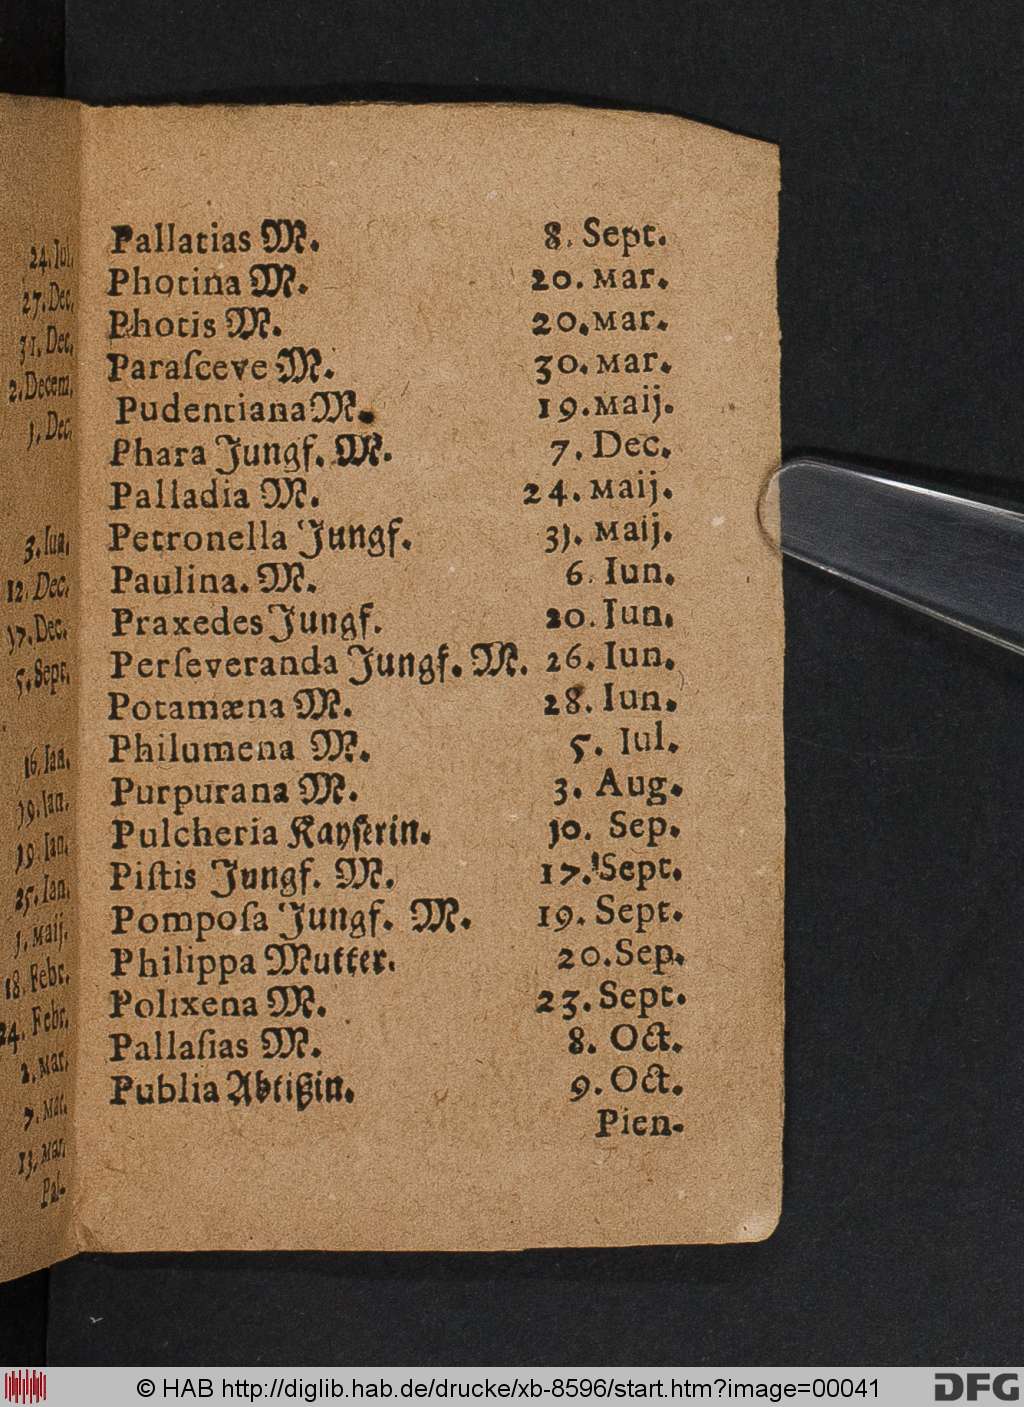 24. Jul.
27. Dec.
31. Dec.
2. Decem.
1. Dec.
3. Iun.
12. Dec.
17. Dec.
5. Sept.
16. Ian.
19. Ian.
19. Ian.
25. Ian.
1. Maij.
18. Febr.
24. Febr.
2. Mar.
7. Mar.
13. Mar.
Pal-
Pallatias M. 8. Sept.
Photina M. 20. Mar.
Photis M. 20. Mar.
Paraſceve M. 30. Mar.
Pudentiana M. 19. Maij.
Phara Jungf. M. 7. Dec.
Palladia M. 24. Maij.
Petronella Jungf. 31. Maij.
Paulina. M. 6. Iun.
Praxedes Jungf. 20. Iun.
Perſeveranda Jungf. M. 26. Iun.
Potamæna M. 28. Iun.
Philumena M. 5. Iul.
Purpurana M. 3. Aug.
Pulcheria Kayſerin. 10. Sep.
Piſtis Jungf. M. 17. Sept.
Pompoſa Jungf. M. 19. Sept.
Philippa Mutter. 20. Sep.
Polixena M. 23. Sept.
Pallaſias M. 8. Oct.
Publia Abtißin. 9. Oct.
Pien-
© HAB http://diglib.hab.de/drucke/xb-8596/start.htm?image=00041
DFG